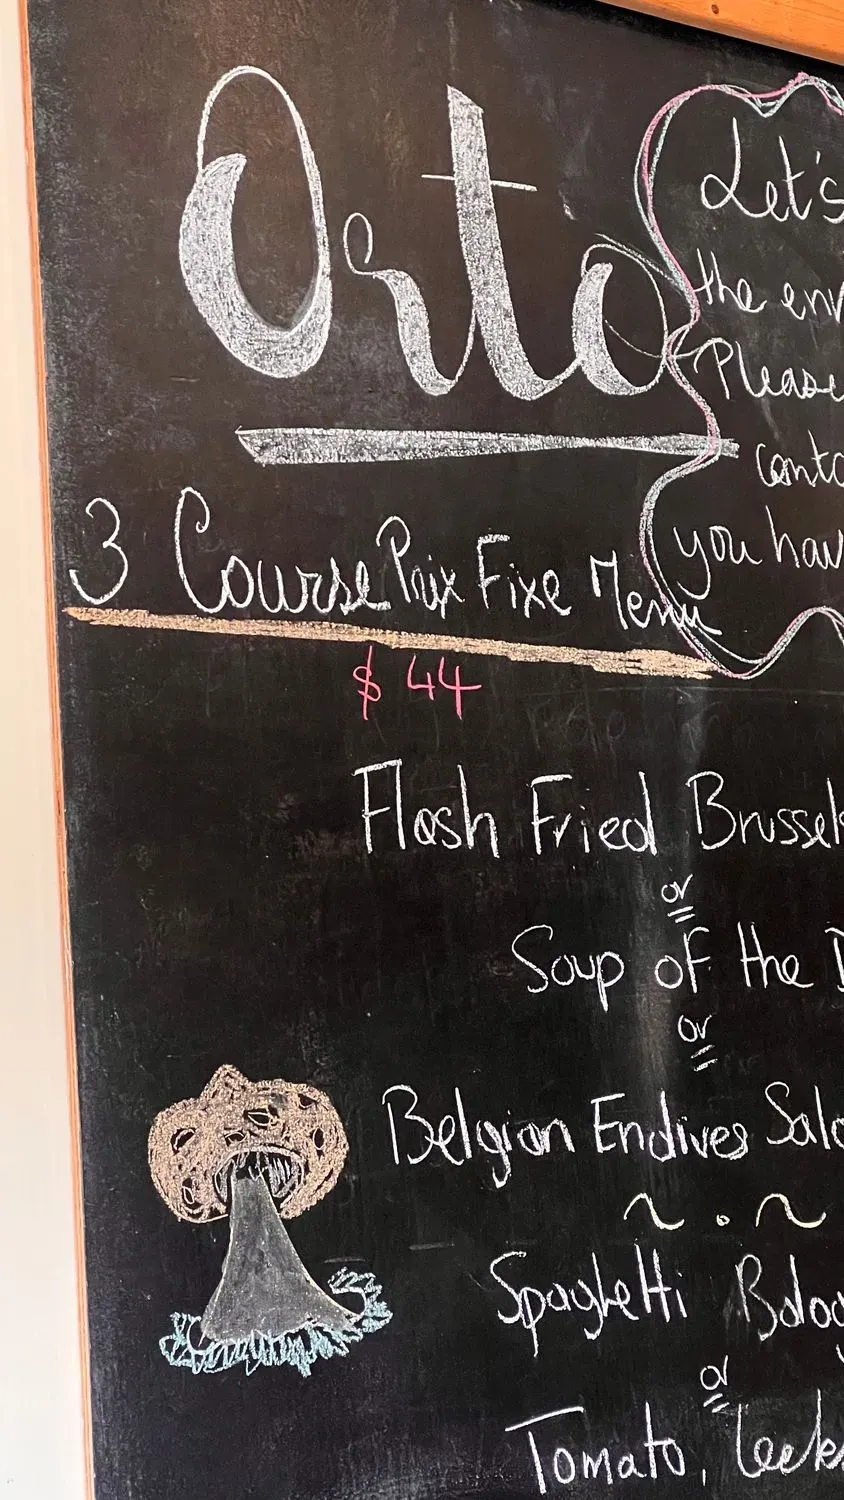 Orto
Let's
the env
Please
conta
you hav
3 Course Prix Fixe Menu
$ 44
Flash Fried Brussel
or
Soup of the D
or
Belgian Endives Sala
Spaghetti Bolog
or
Tomato, leeks